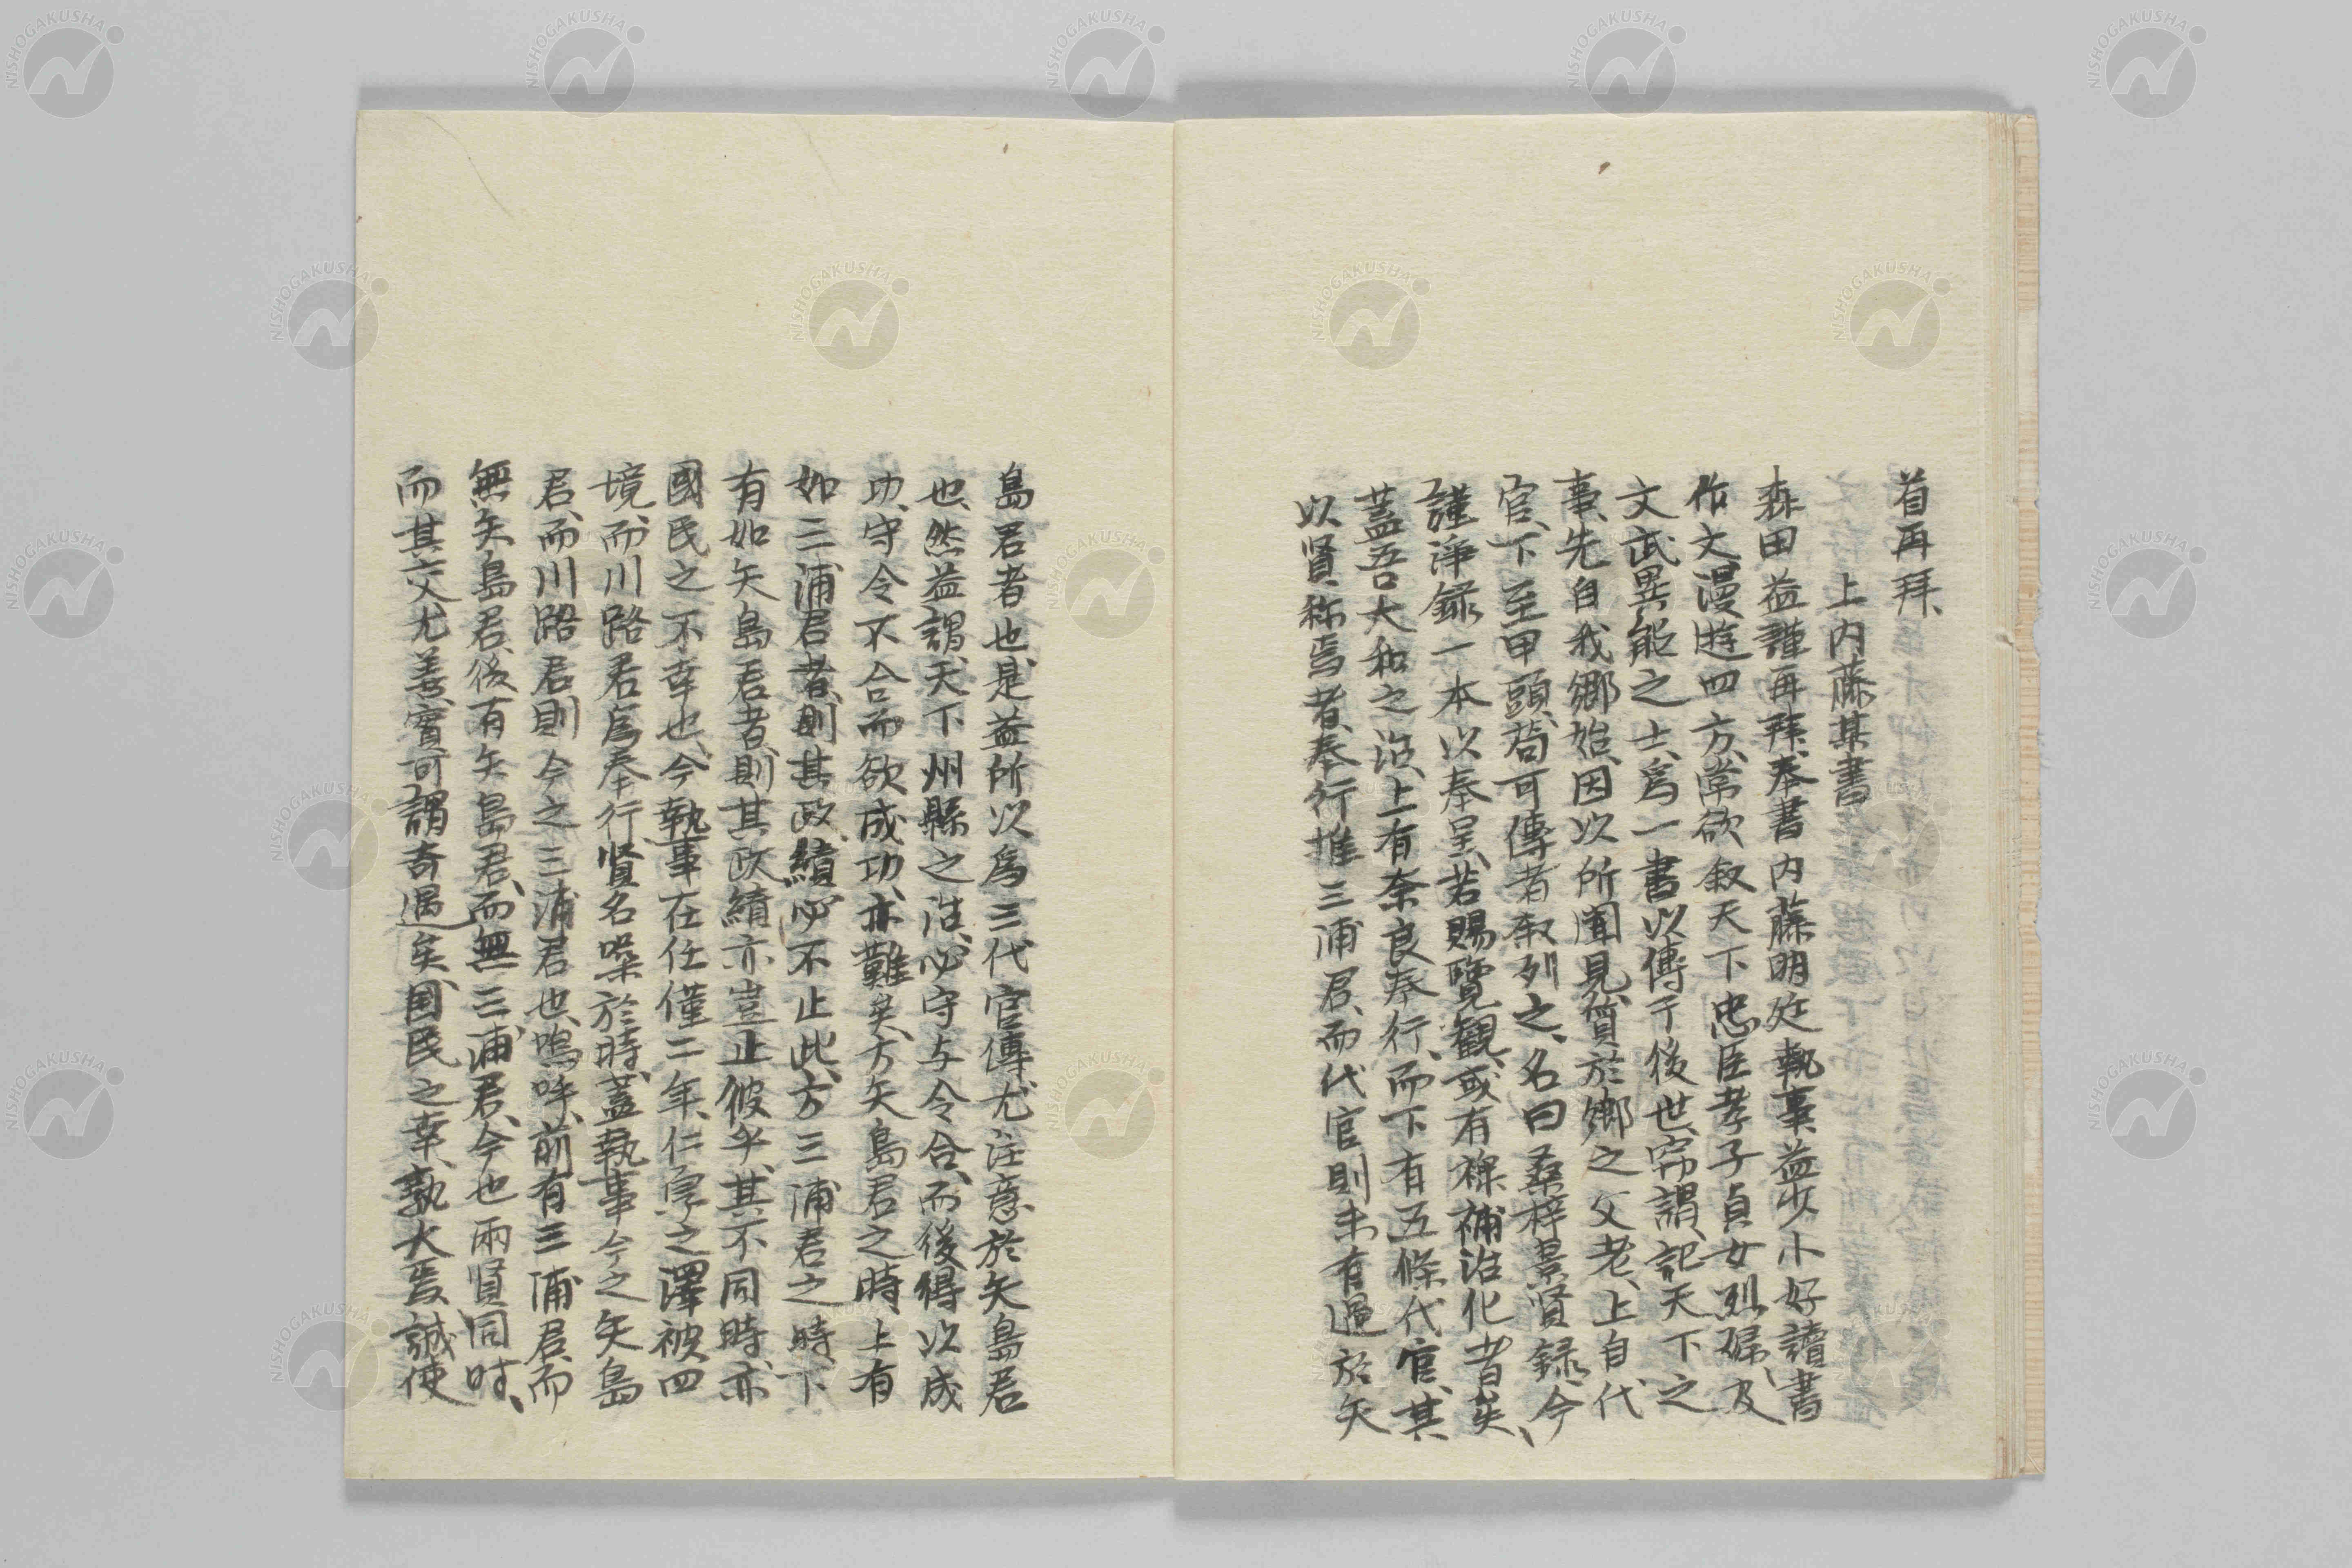 首再拜、
上内藤某書
森田益謹再拜、奉書内藤明廷執事、益少小好讀書
作文、漫遊四方、常欲叙天下忠臣孝子貞女烈婦、及
文武異能之士、為一書以傳于後世、竊謂、記天下之
事、先自我鄉始、因以所聞見、質於鄉之父老、上自代
官、下至甲頭、苟可傳者叙列之、名曰桑梓景賢録、今
謹淨録一本以奉呈、若賜覽觀、或有裨補治化者矣、
蓋吾大和之治、上有奈良奉行、而下有五條代官、其
以賢称焉者、奉行推三浦君、而代官則未有過於矢
島君者也、是益所以為三代官傳尤注意於矢島君
也、然益謂、天下州縣之治、必守与令合、而後得以成
功、守令不合而欲成功、亦難矣、方矢島君之時、上有
如三浦君者、則其政績必不止此、方三浦君之時、下
有如矢島君者、則其政績亦豈止彼乎、其不同時、亦
國民之不幸也、今執事在任僅二年、仁厚之澤被四
境、而川路君為奉行、賢名噪於時、蓋執事今之矢島
君、而川路君則今之三浦君也、嗚呼、前有三浦君、而
無矢島君、後有矢島君、而無三浦君、今也兩賢同時、
而其交尤善、實可謂奇遇矣、国民之幸、孰大焉、誠使
NISHOGAKUSHA
NISHOGAKUSHA
NISHOGAKUSHA
NISHOGAKUSHA
NISHOGAKUSHA
NISHOGAKUSHA
NISHOGAKUSHA
NISHOGAKUSHA
NISHOGAKUSHA
NISHOGAKUSHA
NISHOGAKUSHA
NISHOGAKUSHA